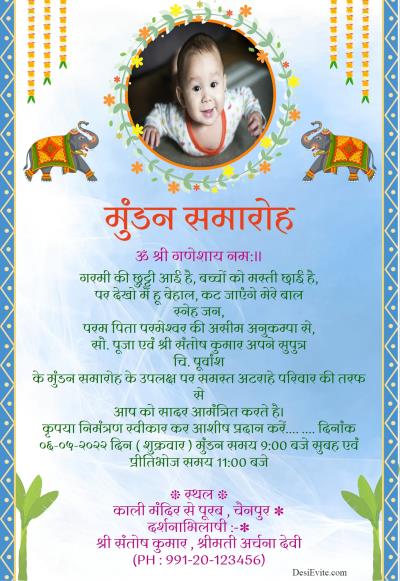 मुंडन समारोह
ॐ श्री गणेशाय नमः॥
गरमी की छुट्टी आई है, बच्चों को मस्ती छाई है,
पर देखो में हू बेहाल, कट जाएंगे मेरे बाल
स्नेह जन,
परम पिता परमेश्वर की असीम अनुकम्पा से,
सौ. पूजा एवं श्री संतोष कुमार अपने सुपुत्र
चि. पूर्वांश
के मुंडन समारोह के उपलक्ष पर समस्त अटराहे परिवार की तरफ
से
आप को सादर आमंत्रित करते है।
कृपया निमंत्रण स्वीकार कर आशीष प्रदान करें.... .... दिनांक
०६-०५-२०२२ दिन ( शुक्रवार ) मुंडन समय 9:00 बजे सुबह एवं
प्रीतिभोज समय 11:00 बजे
❊ स्थल ❊
काली मंदिर से पूरब , चैनपुर ❊
दर्शनाभिलाषी :-❊
श्री संतोष कुमार , श्रीमती अर्चना देवी
(PH : 991-20-123456)
DesiEvite.com